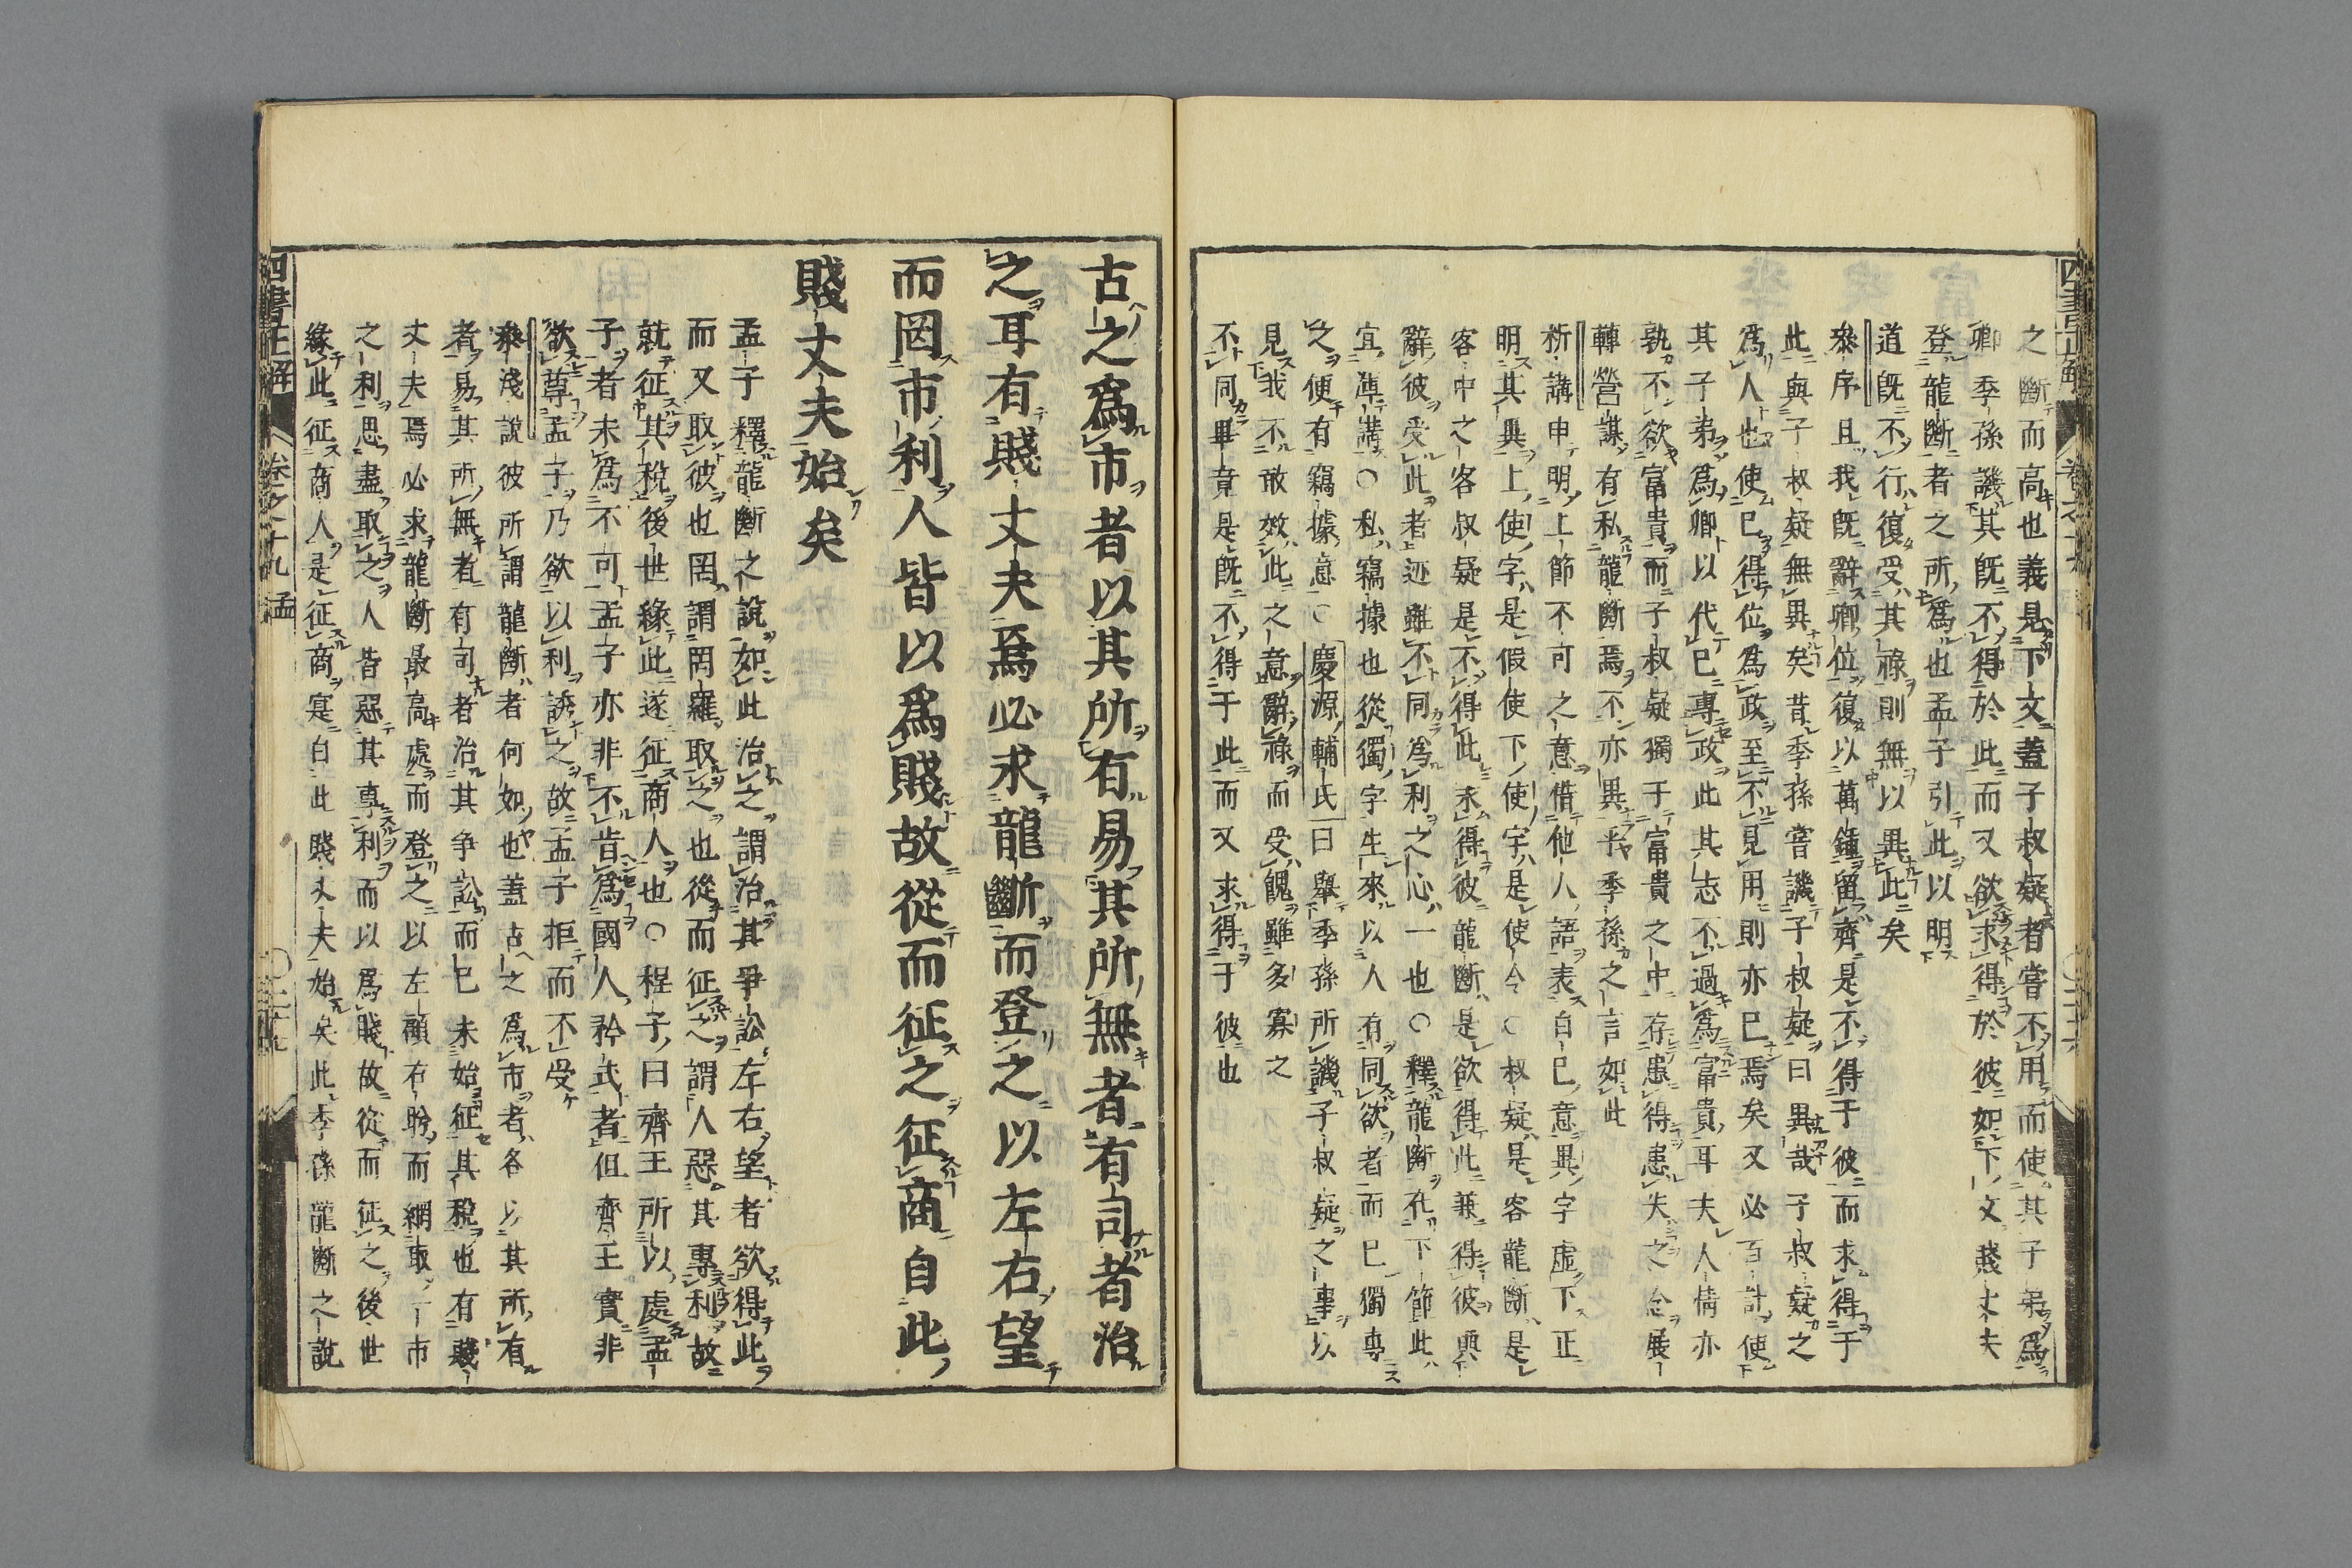 之斷而高也義見下文蓋子叔疑者嘗不用而使其子弟爲
卿季孫譏其既不得於此而又欲求得於彼如下文賤丈夫
登龍斷者之所爲也孟子引此以明
道既不行復受其祿則無以異此矣
參序且我既辭卿位復以萬鍾留齊是不得于彼而求得于
此與子叔疑無異矣昔季孫嘗譏子叔疑曰異哉子叔疑之
爲人也使己得位爲政至不見用則亦已焉矣又必百計使
其子弟爲卿以代己專政此其志不過爲富貴耳夫人情亦
孰不欲富貴而子叔疑獨于富貴之中存患得患失之念展
轉營謀有私龍斷焉不亦異乎季孫之言如此
析講申明上節不可之意借他人語表白己意異字虛下正
明其異上使字是假使下使字是使令○叔疑是客龍斷是
客中之客叔疑是不得此求得彼龍斷是欲得此兼得彼與
辭彼受此者迹雖不同爲利之心一也○釋龍斷在下節此
宜專講○私竊據也從獨字生來以人有同欲者而已獨專
之便有竊據意○慶源輔氏曰舉季孫所譏子叔疑之事以
見我不敢效此之意辭祿而受餽雖多寡之
不同畢竟是既不得于此而又求得于彼也
古之爲市者以其所有易其所無者有司者治
之耳有賤丈夫焉必求龍斷而登之以左右望
而罔市利人皆以爲賤故從而征之征商自此
賤丈夫始矣
孟子釋龍斷之說如此治之謂治其爭訟左右望者欲得此
而又取彼也罔謂罔羅取之也從而征之謂人惡其專利故
就征其稅後世緣此遂征商人也○程子曰齊王所以處孟
子者未爲不可孟子亦非不肯爲國人矜式者但齊王實非
欲尊孟子乃欲以利誘之故孟子拒而不受
參淺說彼所謂龍斷者何如也蓋古之爲市者各以其所有
者易其所無者有司者治其爭訟而已未始征其稅也有賤
丈夫焉必求龍斷最高處而登之以左顧右盼而網取一市
之利思盡取之人皆惡其專利而以爲賤故從而征之後世
緣此征商人是征商寔自此賤丈夫始矣此季孫龍斷之說
四書正解 卷之十九 孟